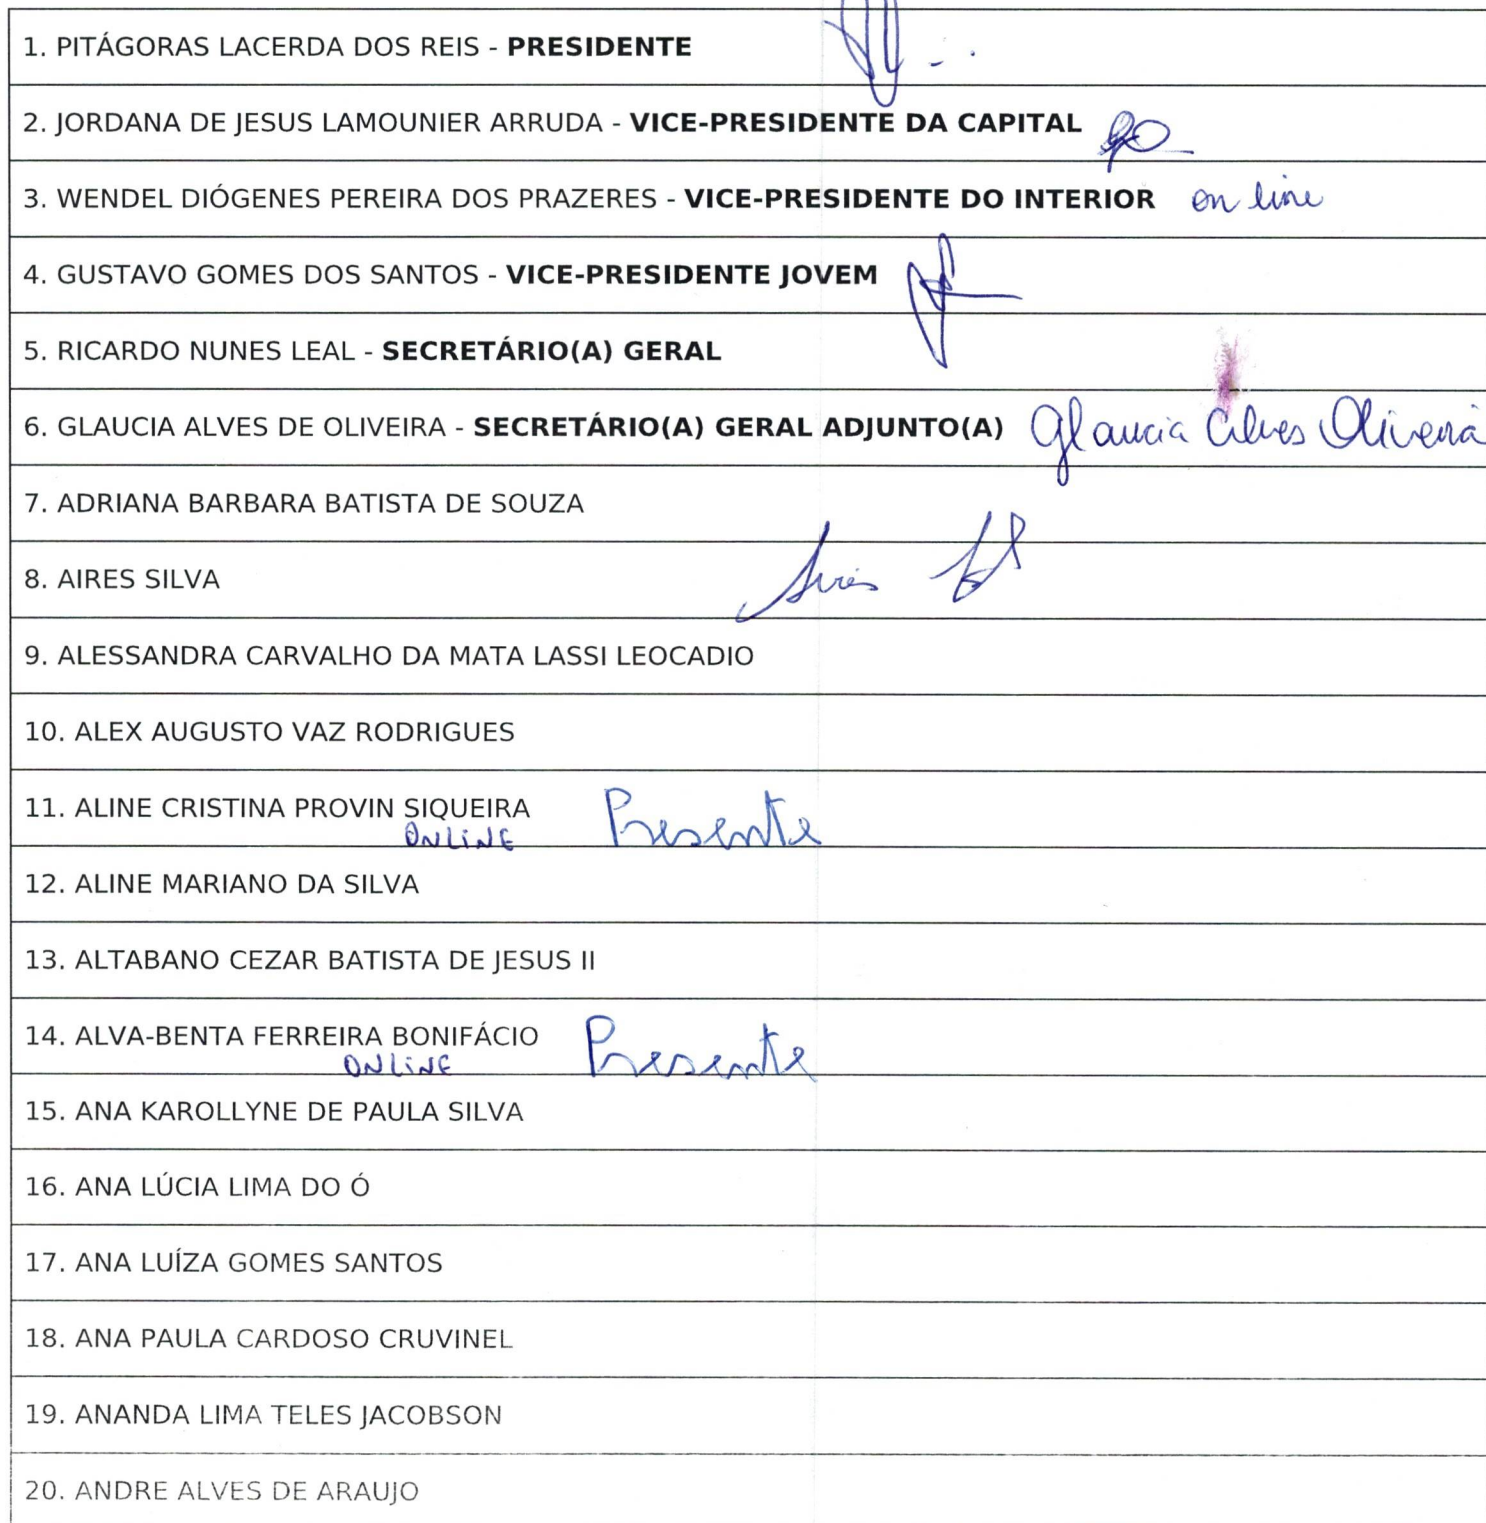 1. PITÁGORAS LACERDA DOS REIS - PRESIDENTE
2. JORDANA DE JESUS LAMOUNIER ARRUDA - VICE-PRESIDENTE DA CAPITAL
3. WENDEL DIÓGENES PEREIRA DOS PRAZERES - VICE-PRESIDENTE DO INTERIOR on line
4. GUSTAVO GOMES DOS SANTOS - VICE-PRESIDENTE JOVEM
5. RICARDO NUNES LEAL - SECRETÁRIO(A) GERAL
6. GLAUCIA ALVES DE OLIVEIRA - SECRETÁRIO(A) GERAL ADJUNTO(A) Glaucia Alves Oliveira
7. ADRIANA BARBARA BATISTA DE SOUZA
8. AIRES SILVA Aires
9. ALESSANDRA CARVALHO DA MATA LASSI LEOCADIO
10. ALEX AUGUSTO VAZ RODRIGUES
11. ALINE CRISTINA PROVIN SIQUEIRA Presente
ONLINE
12. ALINE MARIANO DA SILVA
13. ALTABANO CEZAR BATISTA DE JESUS II
14. ALVA-BENTA FERREIRA BONIFÁCIO Presente
ONLINE
15. ANA KAROLLYNE DE PAULA SILVA
16. ANA LÚCIA LIMA DO Ó
17. ANA LUÍZA GOMES SANTOS
18. ANA PAULA CARDOSO CRUVINEL
19. ANANDA LIMA TELES JACOBSON
20. ANDRE ALVES DE ARAUJO